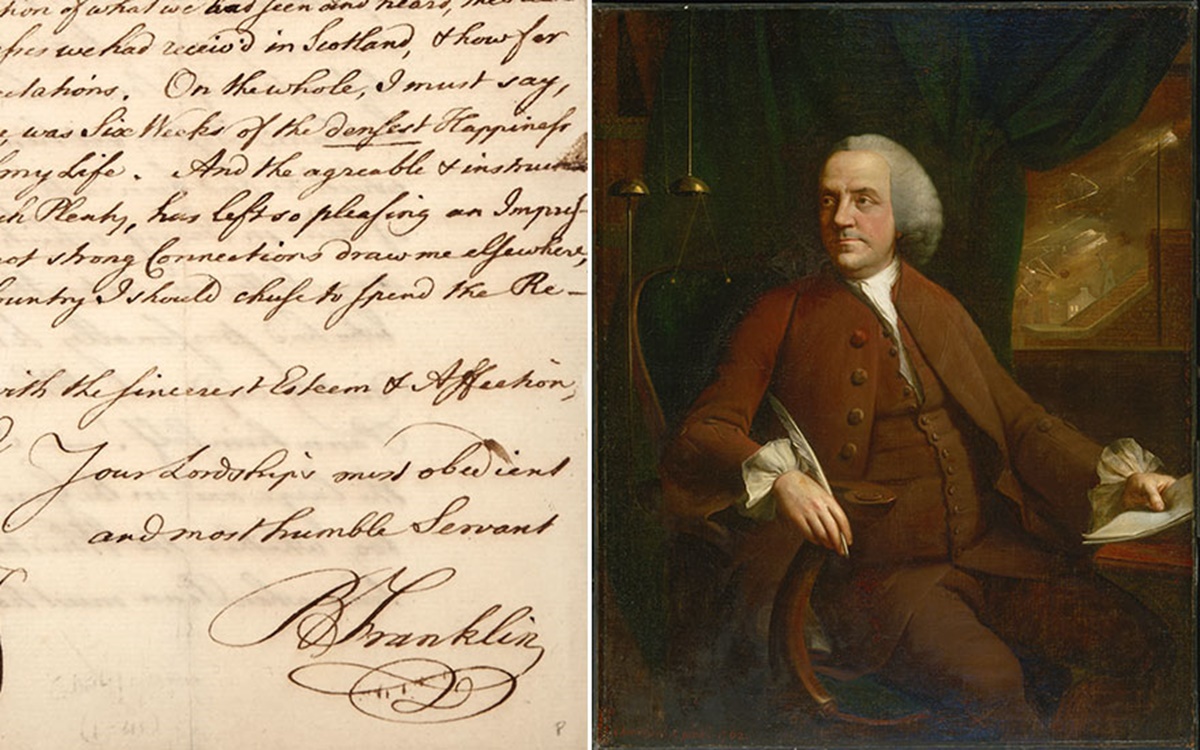 tion of what we had seen and heard, the
esses we had receiv'd in Scotland, & how far
ectations. On the whole, I must say,
e, was Six Weeks of the densest Happiness
my Life. And the agreable & instruc
ch Plenty, has left so pleasing an Impres-
not strong Connections draw me elsewhere,
ountry I should chuse to spend the Re-
with the sincerest Esteem & Affection,
Your Lordship's most obedient
and most humble Servant
B Franklin